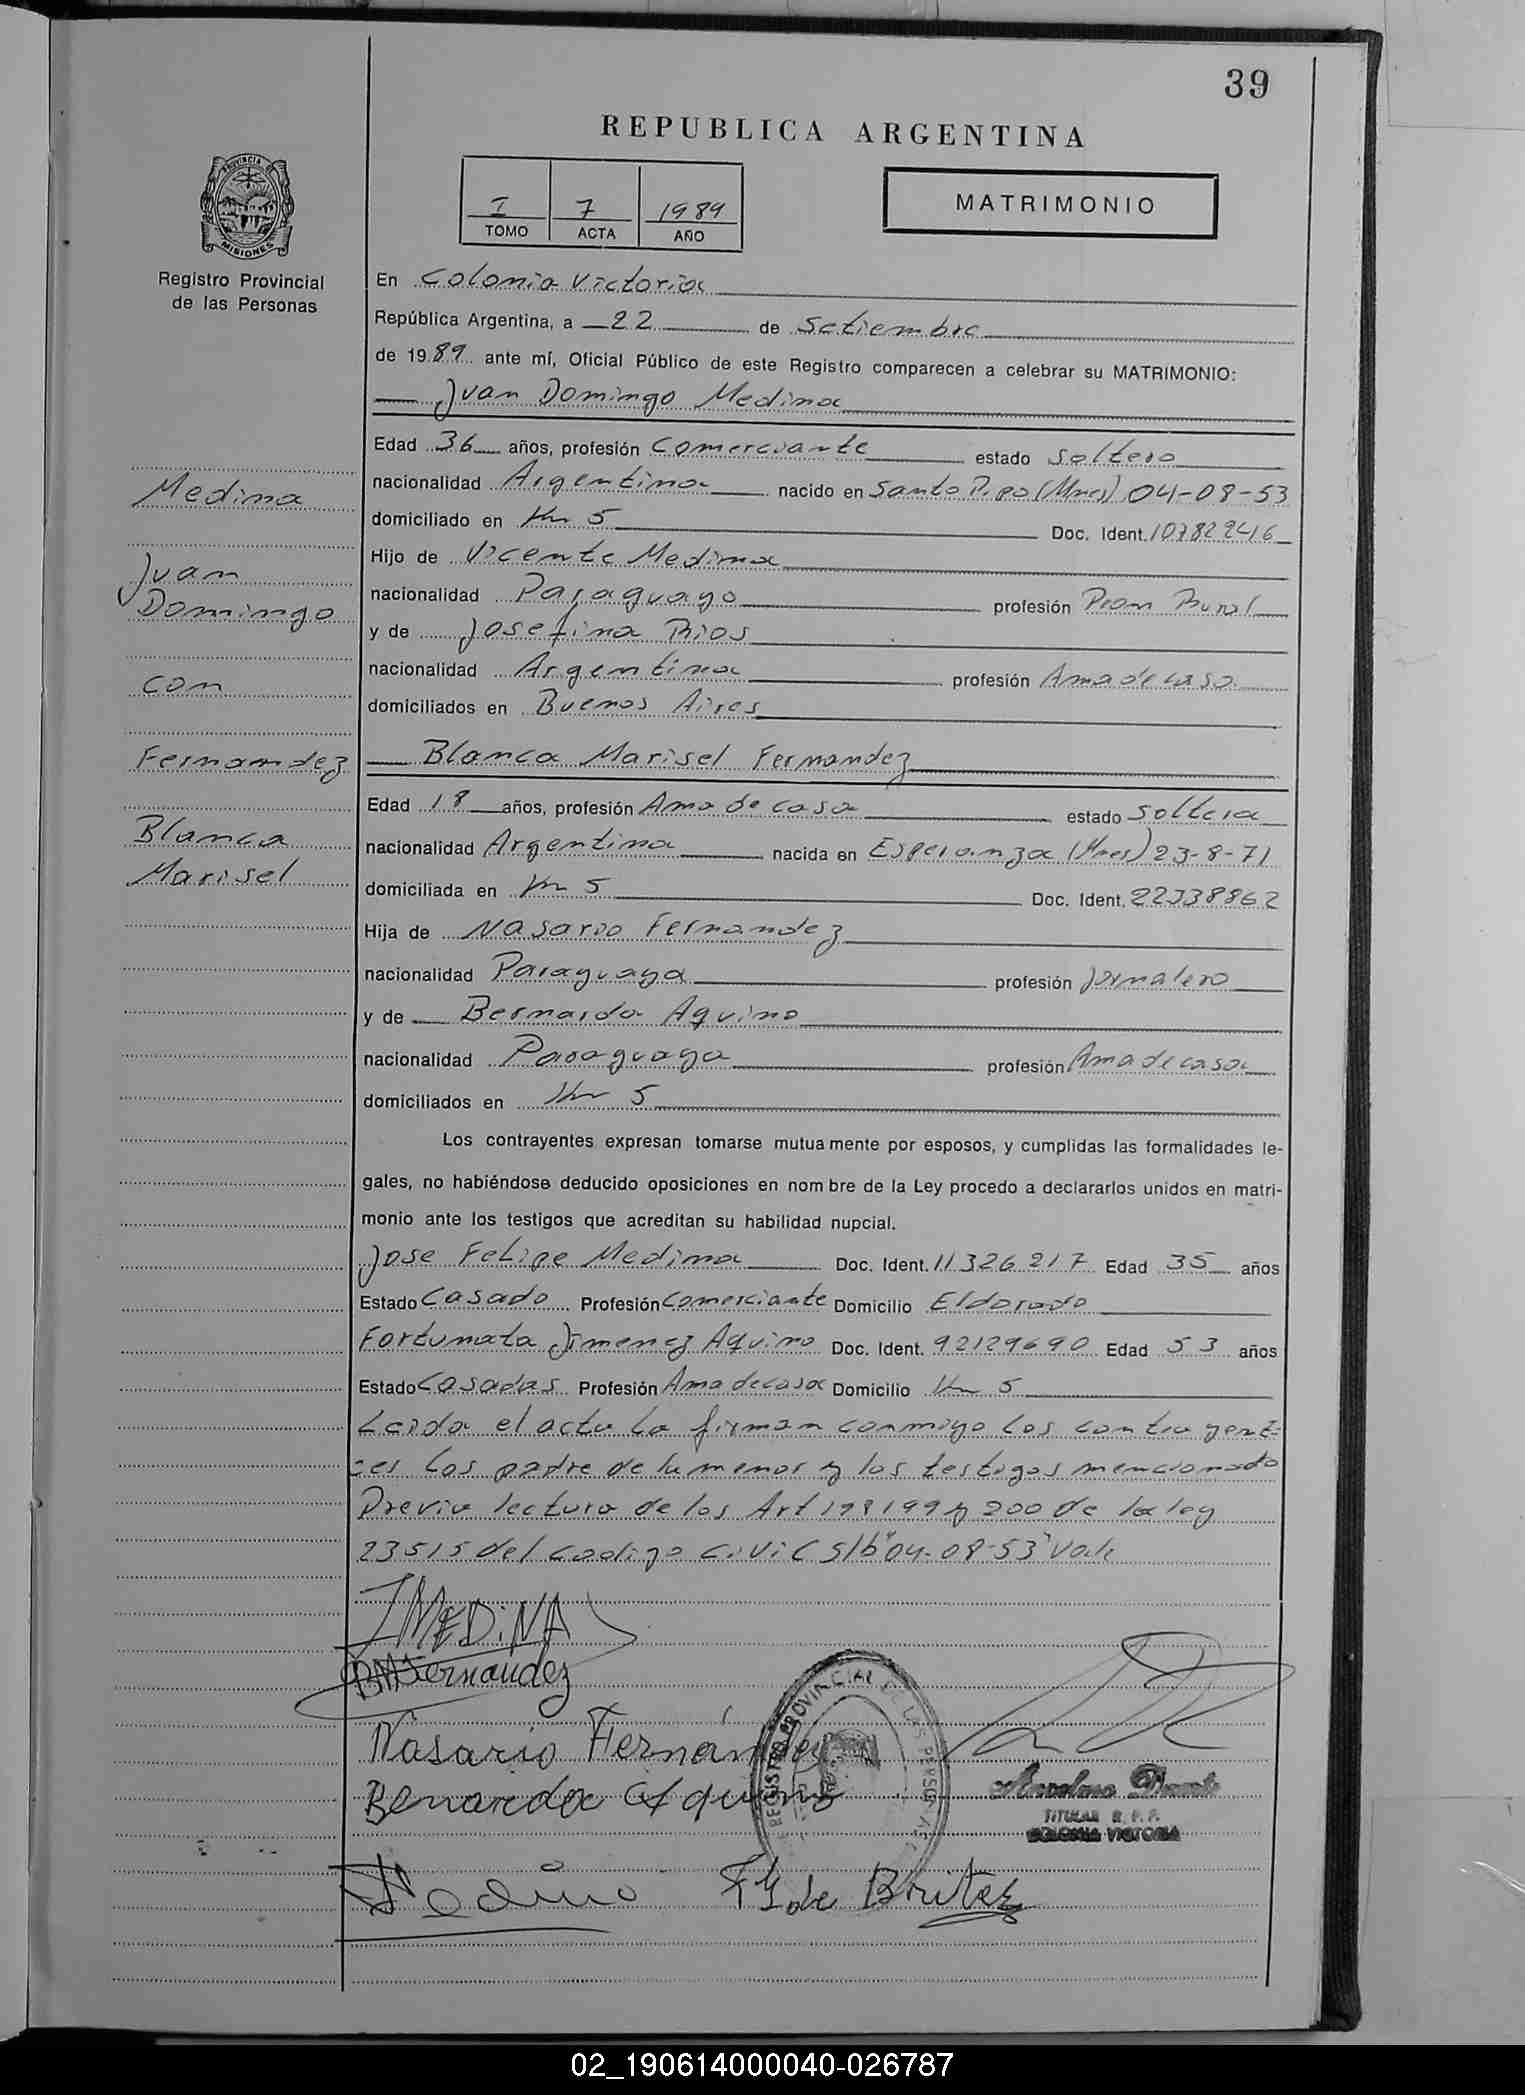 39
REPUBLICA ARGENTINA
PROVINCIA DE
MISIONES
Registro Provincial
de las Personas
I 7 1989
TOMO ACTA AÑO
MATRIMONIO
En Colonia Victoria
República Argentina, a 22 de Setiembre
de 1989 ante mí, Oficial Público de este Registro comparecen a celebrar su MATRIMONIO:
Juan Domingo Medina
Edad 36 años, profesión Comerciante estado Soltero
nacionalidad Argentina nacido en Santo Pipo (Mnes) 04-08-53
domiciliado en Km 5 Doc. Ident. 10782246
Hijo de Vicente Medina
nacionalidad Paraguayo profesión Peon Rural
y de Josefina Rios
nacionalidad Argentina profesión Ama de casa
domiciliados en Buenos Aires
Medina
Juan
Domingo
con
Fernandez
Blanca
Marisel
Blanca Marisel Fernandez
Edad 18 años, profesión Ama de casa estado Soltera
nacionalidad Argentina nacida en Esperanza (Mnes) 23-8-71
domiciliada en Km 5 Doc. Ident. 22338862
Hija de Nasario Fernandez
nacionalidad Paraguaya profesión Jornalero
y de Bernarda Aquino
nacionalidad Paraguaya profesión Ama de casa
domiciliados en Km 5
Los contrayentes expresan tomarse mutuamente por esposos, y cumplidas las formalidades le-
gales, no habiéndose deducido oposiciones en nombre de la Ley procedo a declararlos unidos en matri-
monio ante los testigos que acreditan su habilidad nupcial.
Jose Felipe Medina Doc. Ident. 11326217 Edad 35 años
Estado Casado Profesión Comerciante Domicilio Eldorado
Fortunata Jimenez Aquino Doc. Ident. 92129690 Edad 53 años
Estado Casadas Profesión Ama de casa Domicilio Km 5
Leida el acta la firman conmigo los contrayent-
es los padre de la menor y los testigos mencionado
Previa lectura de los Art 198 199 y 200 de la ley
23515 del codigo Civil S/b "04-08-53" Vale
J MEDiNA
BMFernandez
Nasario Fernández
Benarda Aquino
REGISTRO PROVINCIAL DE LAS PERSONAS
TITULAR R. P. P.
COLONIA VICTORIA
FJ de Britez
02_190614000040-026787